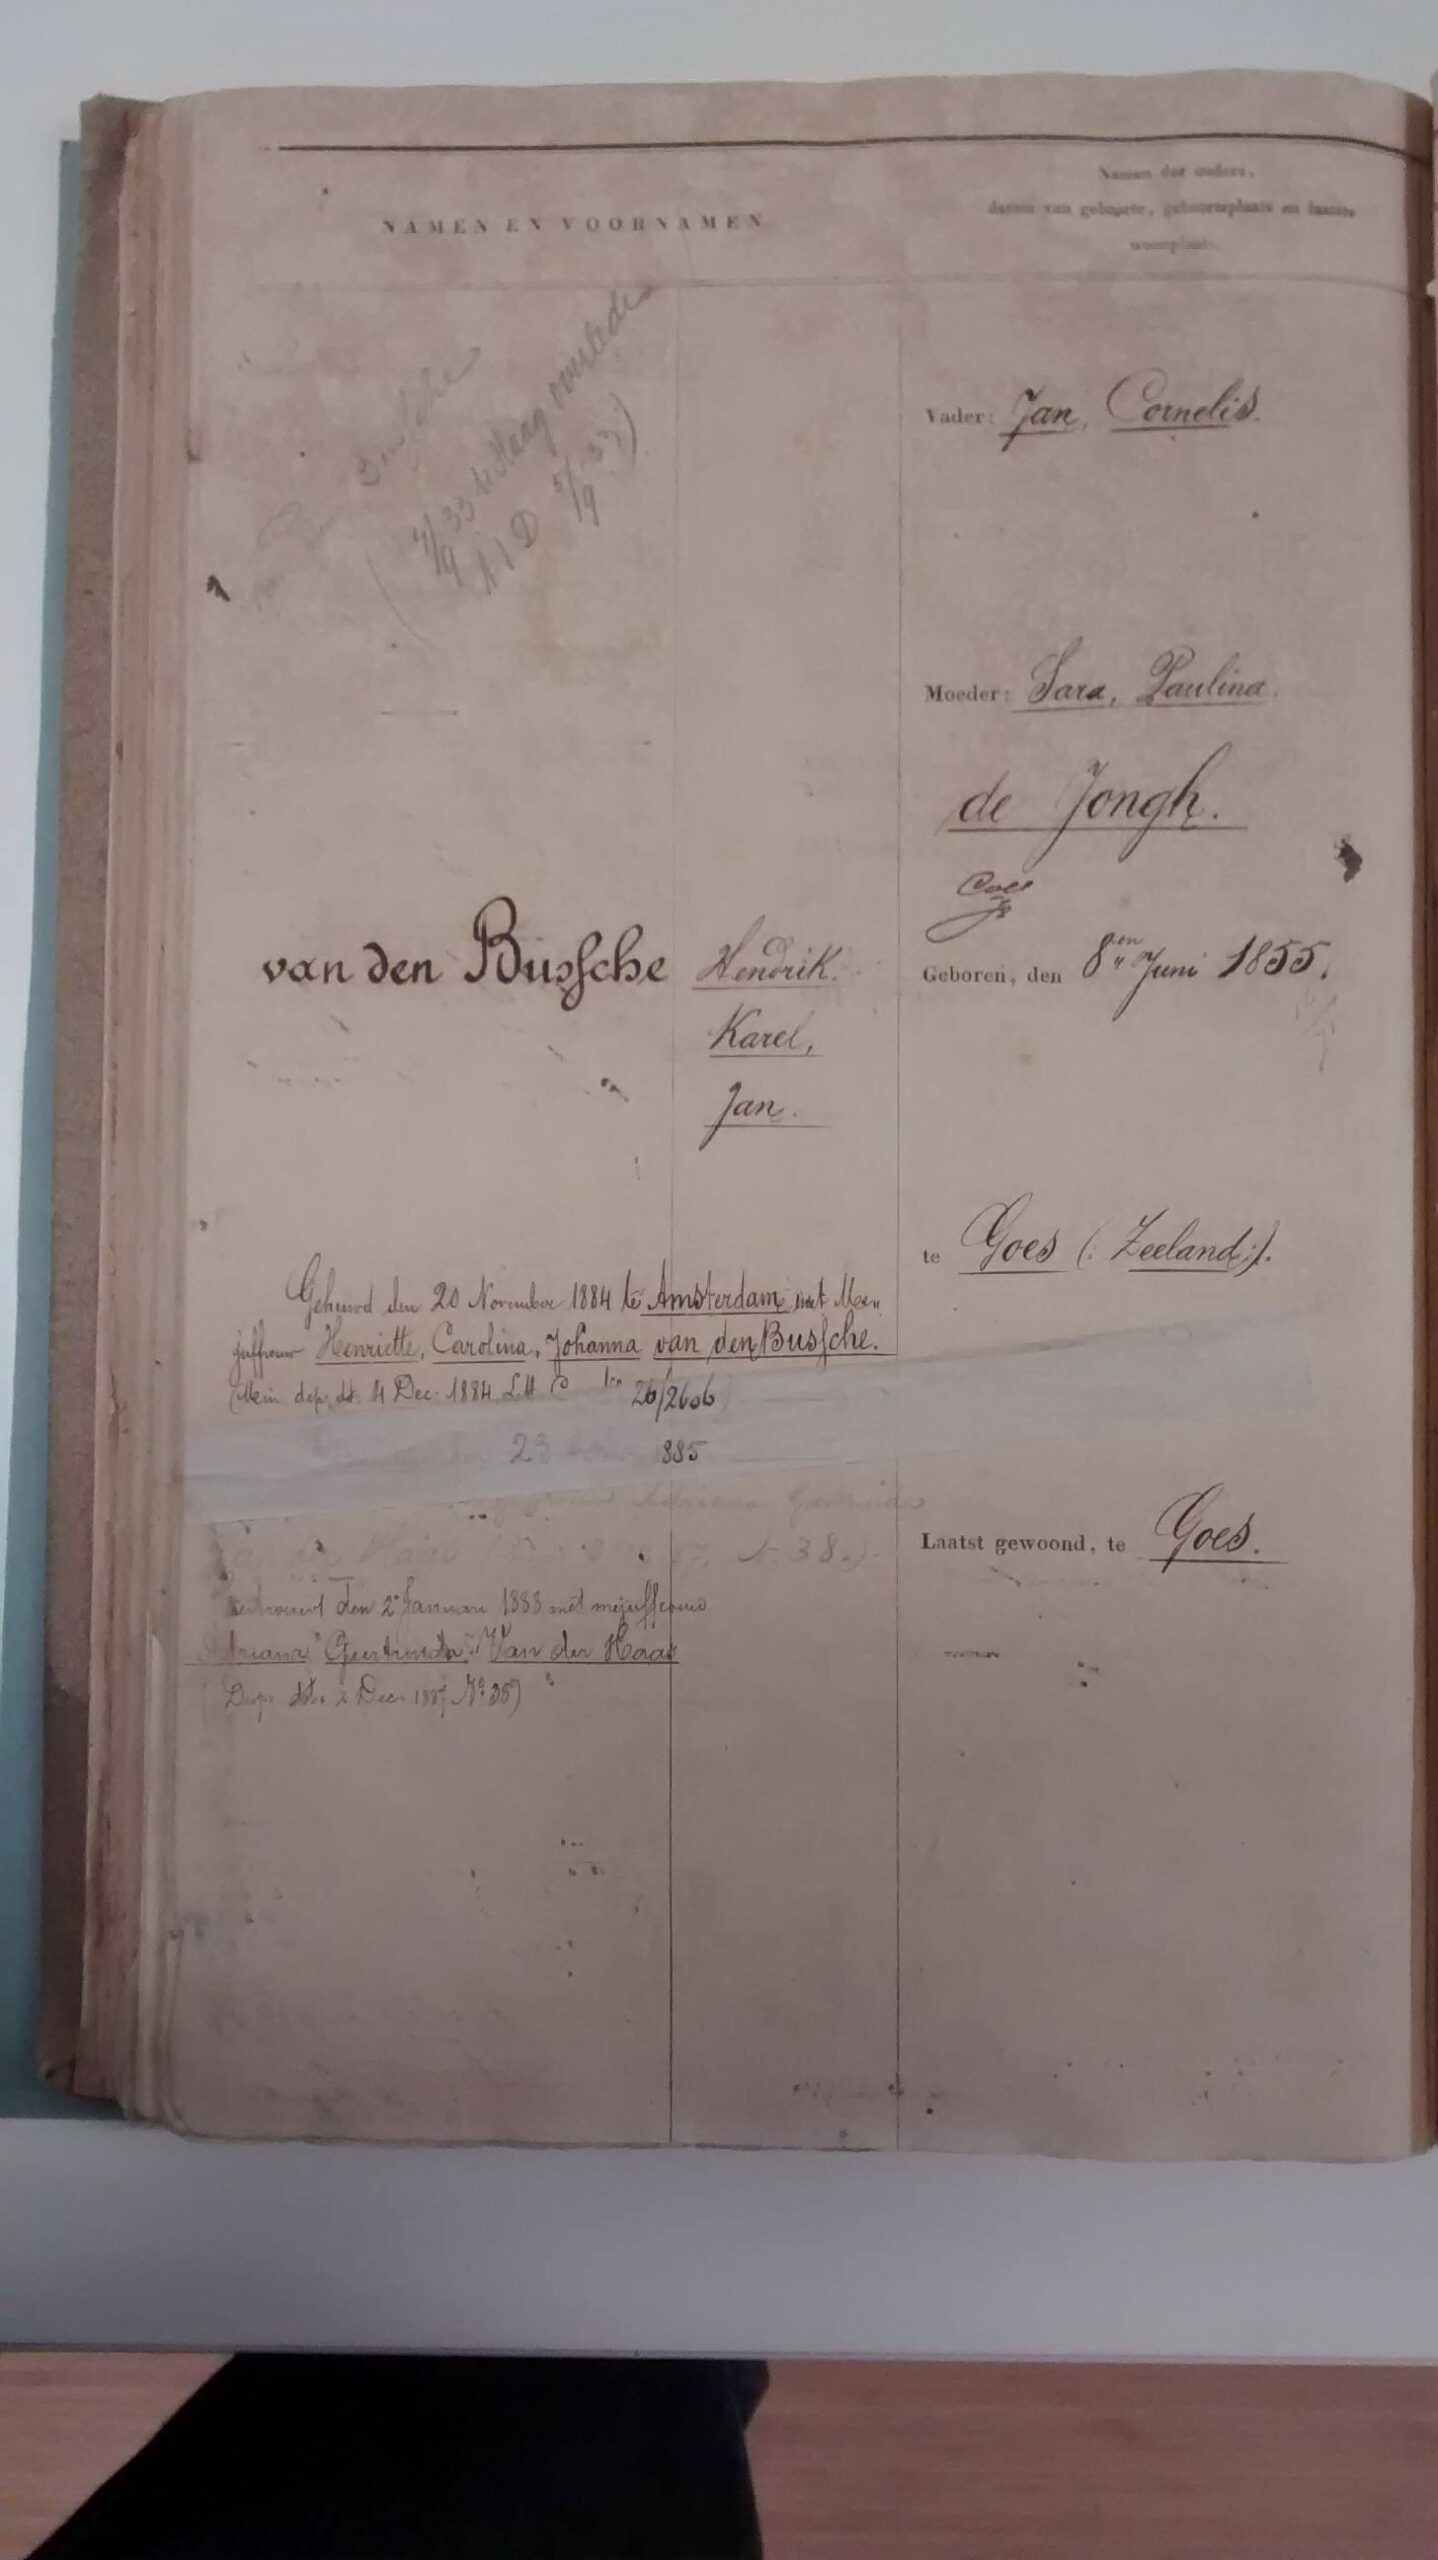 NAMEN EN VOORNAMEN
Namen der ouders,
datum van geboorte, geboorteplaats en laatste
woonplaats.
Bussche
4/9 33 Haag overleden
A I D 5/9 33)
Vader: Jan, Cornelis.
Moeder: Sara, Paulina.
de Jongh.
van den Bussche
Hendrik.
Karel,
Jan.
Geboren, den 8en Juni 1855.
te Goes (: Zeeland:).
Gehuwd den 20 November 1884 te Amsterdam, met Me
juffrouw Henriette, Carolina, Johanna van den Bussche.
dep. dd. 4 Dec: 1884 26/2606
23 885
Adriana
38.)
Laatst gewoond, te Goes.
den 2 Januari 1888 met mejuffrouw
Geertruida, Van der
Dec. 1887 No 38)